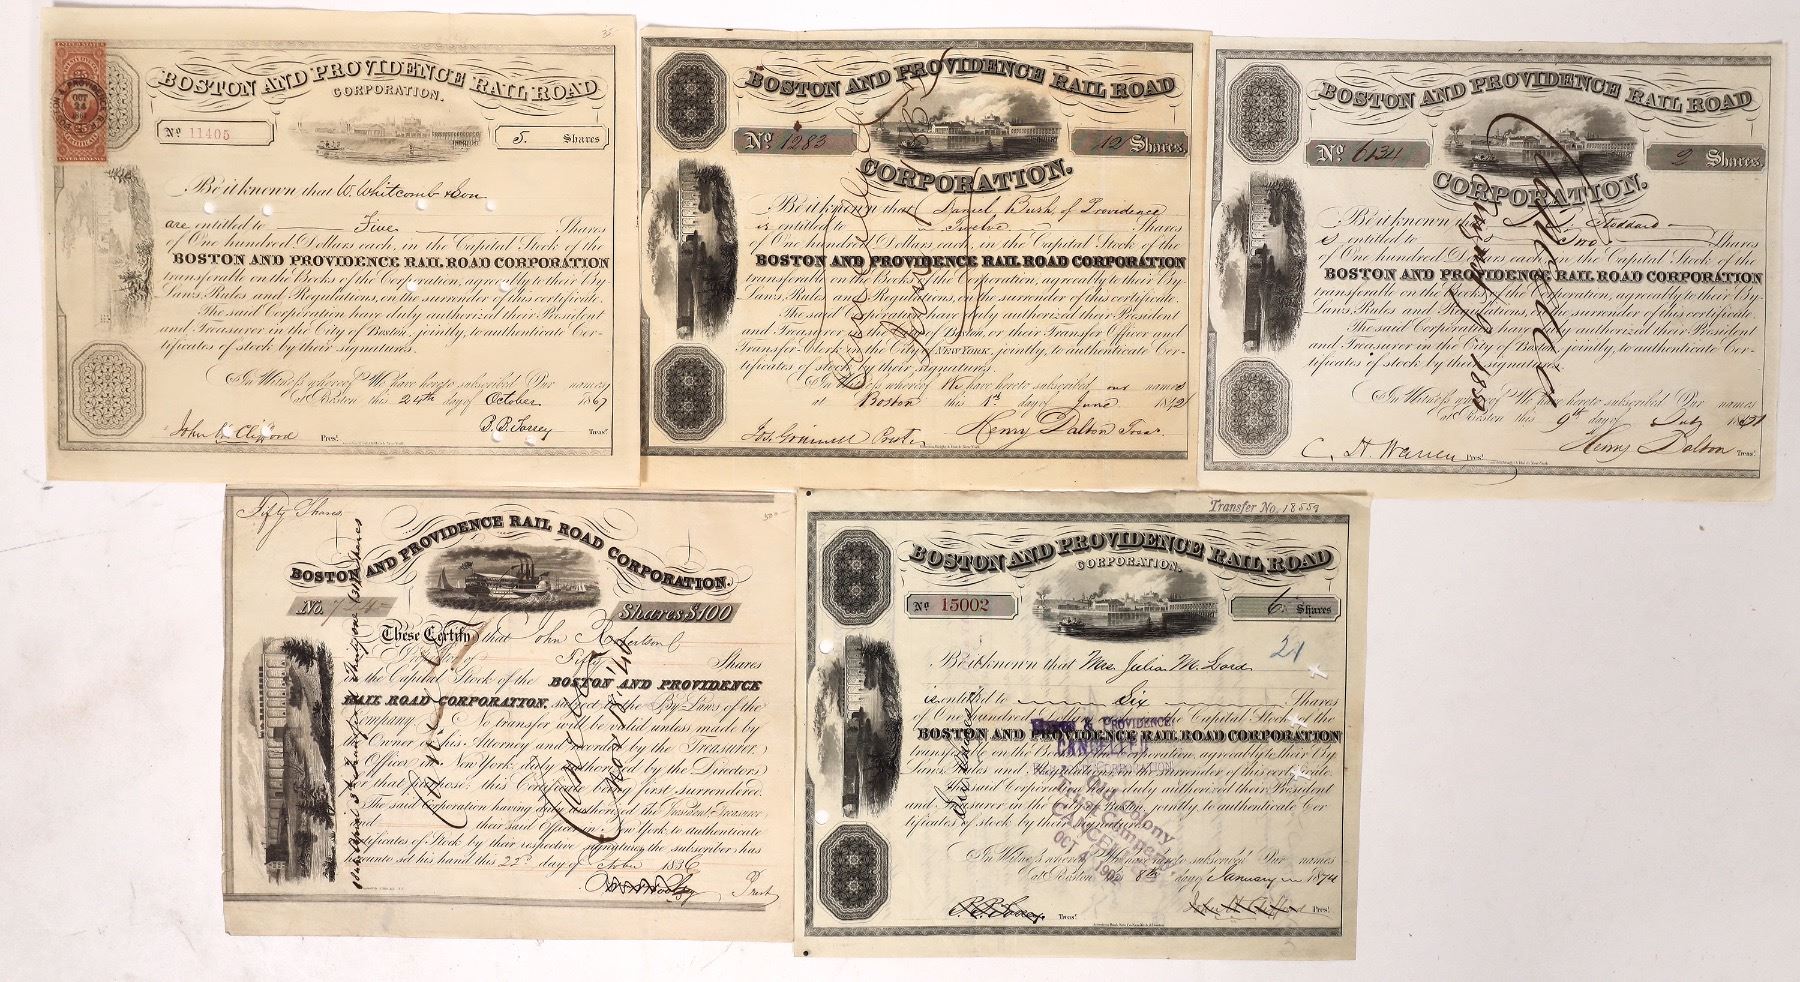 35
UNITED STATES
25
OCT
24
25
INTER. REVENUE
BOSTON AND PROVIDENCE RAIL ROAD
CORPORATION.
No 11405
5. Shares
Be it known that W. Whitcomb & Son
are entitled to Five Shares
of One hundred Dollars each, in the Capital Stock of the
BOSTON AND PROVIDENCE RAIL ROAD CORPORATION
transferable on the Books of the Corporation, agreeably to their By-
Laws, Rules and Regulations, on the surrender of this certificate.
The said Corporation have duly authorized their President
and Treasurer in the City of Boston, jointly, to authenticate Cer-
tificates of stock by their signatures.
In Witness whereof We have hereto subscribed Our names
at Boston this 24th day of October 1867
John H. Clifford Pres!
B. B. Torrey Treas!
BOSTON AND PROVIDENCE RAIL ROAD
No 1283
12 Shares.
CORPORATION.
Be it known that Daniel Bush of Providence
is entitled to Twelve Shares
of One hundred Dollars each, in the Capital Stock of the
BOSTON AND PROVIDENCE RAIL ROAD CORPORATION
transferable on the Books of the Corporation, agreeably to their By-
Laws, Rules and Regulations, on the surrender of this certificate.
The said Corporation have duly authorized their President
and Treasurer in the City of Boston, or their Transfer Officer and
Transfer Clerk in the City of NEW YORK, jointly, to authenticate Cer-
tificates of stock by their signatures.
In Witness whereof We have hereto subscribed our names
at Boston this 1st day of June 1842
Jos. Grinnell Prest.
Henry Dalton Treas.
BOSTON AND PROVIDENCE RAIL ROAD
No 6134
2 Shares.
CORPORATION.
Be it known that Stoddard
is entitled to Two Shares
of One hundred Dollars each, in the Capital Stock of the
BOSTON AND PROVIDENCE RAIL ROAD CORPORATION
transferable on the Books of the Corporation, agreeably to their By-
Laws, Rules and Regulations, on the surrender of this certificate.
The said Corporation have duly authorized their President
and Treasurer in the City of Boston, jointly, to authenticate Cer-
tificates of stock by their signatures.
In Witness whereof We have hereto subscribed Our names
at Boston this 9th day of July
C. H. Warren Pres!
Henry Dalton Treas!
Fifty Shares
BOSTON AND PROVIDENCE RAIL ROAD CORPORATION.
No.
Shares $100
These Certify that John Robertson
Fifty Shares
in the Capital Stock of the BOSTON AND PROVIDENCE
RAIL ROAD CORPORATION, subject to the By-Laws of the
Company. No transfer will be valid unless made by
the Owner or his Attorney and recorded by the Treasurer
Officer in New York duly authorized by the Directors
for that purpose; this Certificate being first surrendered.
The said Corporation having duly authorized the President Treasurer
and their said Officer in New York to authenticate
Certificates of Stock by their respective signatures, the subscriber has
hereunto set his hand this 22d day of October 1836
Prest
Transfer No. 18559
BOSTON AND PROVIDENCE RAIL ROAD
CORPORATION.
No 15002
6 Shares
21
Be it known that Mrs Julia M. Lord
is entitled to Six Shares
of One hundred Dollars each, in the Capital Stock of the
BOSTON AND PROVIDENCE RAIL ROAD CORPORATION
transferable on the Books of the Corporation, agreeably to their By-
Laws, Rules and Regulations, on the surrender of this certificate.
The said Corporation have duly authorized their President
and Treasurer in the City of Boston, jointly, to authenticate Cer
tificates of stock by their signatures.
In Witness whereof We have hereto subscribed Our names
at Boston this 8th day of January 1874
B. B. Torrey Treas!
John H. Clifford Pres!
& PROVIDENCE
CANCELLED
Old Colony
Trust Company,
CANCELLED
OCT 4 1902